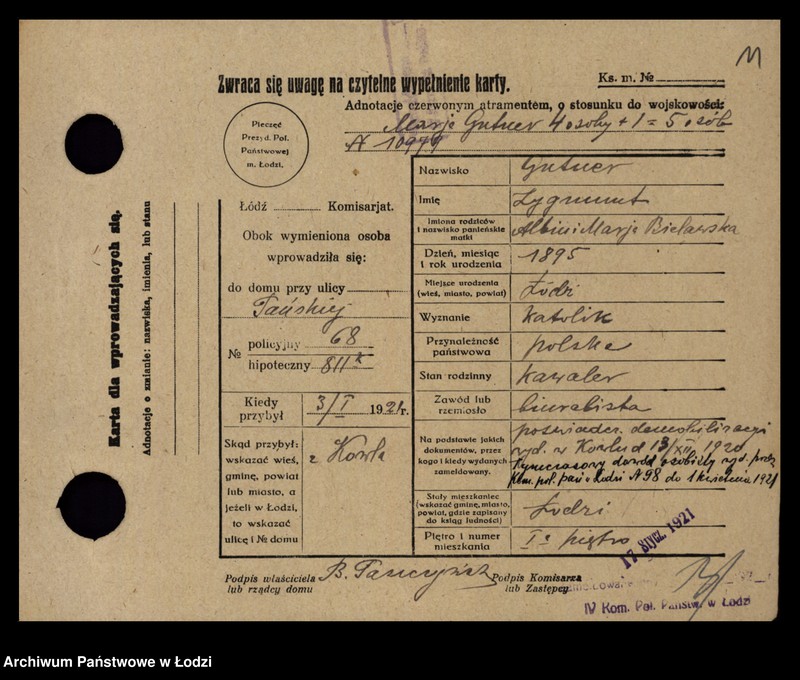 M
Zwraca się uwagę na czytelne wypełnienie karty.
Ks. m. №
Adnotacje czerwonym atramentem, o stosunku do wojskowości:
Marja Gutner 4 osoby + 1 = 5 osób
A 10949
Pieczęć
Prezyd. Pol.
Państwowej
m. Łodzi.
Karta dla wprowadzających się.
Adnotacje o zmianie: nazwiska, imienia, lub stanu
Łódź Komisarjat.
Obok wymieniona osoba
wprowadziła się:
do domu przy ulicy
Tańskiej
№ policyjny 68
hipoteczny 811 k
Kiedy
przybył 3/I 1921 r.
Skąd przybył:
wskazać wieś,
gminę, powiat
lub miasto, a
jeżeli w Łodzi,
to wskazać
ulicę i № domu
z Kowla
Nazwisko Gutner
Imię Zygmunt
Imiona rodziców
i nazwisko panieńskie
matki
Albin i Marja Bielawska
Dzień, miesiąc
i rok urodzenia
1895
Miejsce urodzenia
(wieś, miasto, powiat)
Łódź
Wyznanie katolik
Przynależność
państwowa
polska
Stan rodzinny kawaler
Zawód lub
rzemiosło
biuralista
Na podstawie jakich
dokumentów, przez
kogo i kiedy wydanych
zameldowany.
poświadcz. demobilizacji
wyd. w Kowlu d 13/XII 1920
Tymczasowy dowód osobisty wyd. przez
Kom. pol. pań w Łodzi N 98 do 1 kwietnia 1921
Stały mieszkaniec
(wskazać gminę, miasto,
powiat, gdzie zapisany
do ksiąg ludności)
Łodzi
Piętro i numer
mieszkania
I piętro
17 Stycz. 1921
Podpis właściciela
lub rządcy domu
B.
Podpis Komisarza
lub Zastępcy
IV Kom. Pol. Państw. w Łodzi
Archiwum Państwowe w Łodzi